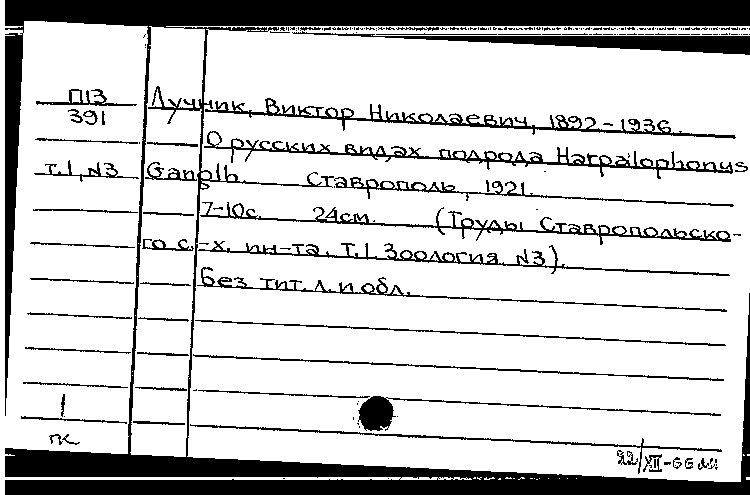 П13 Лучник, Виктор Николаевич, 1892-1936.
391
О русских видах подрода Harpalophonus
т.1, N3 Ganglb. Ставрополь, 1921.
7-10с. 24см. (Труды Ставропольско-
го с.-х. ин-та. Т.1. Зоология. N3).
Без тит. л. и обл.
1
пк
22/XII-66